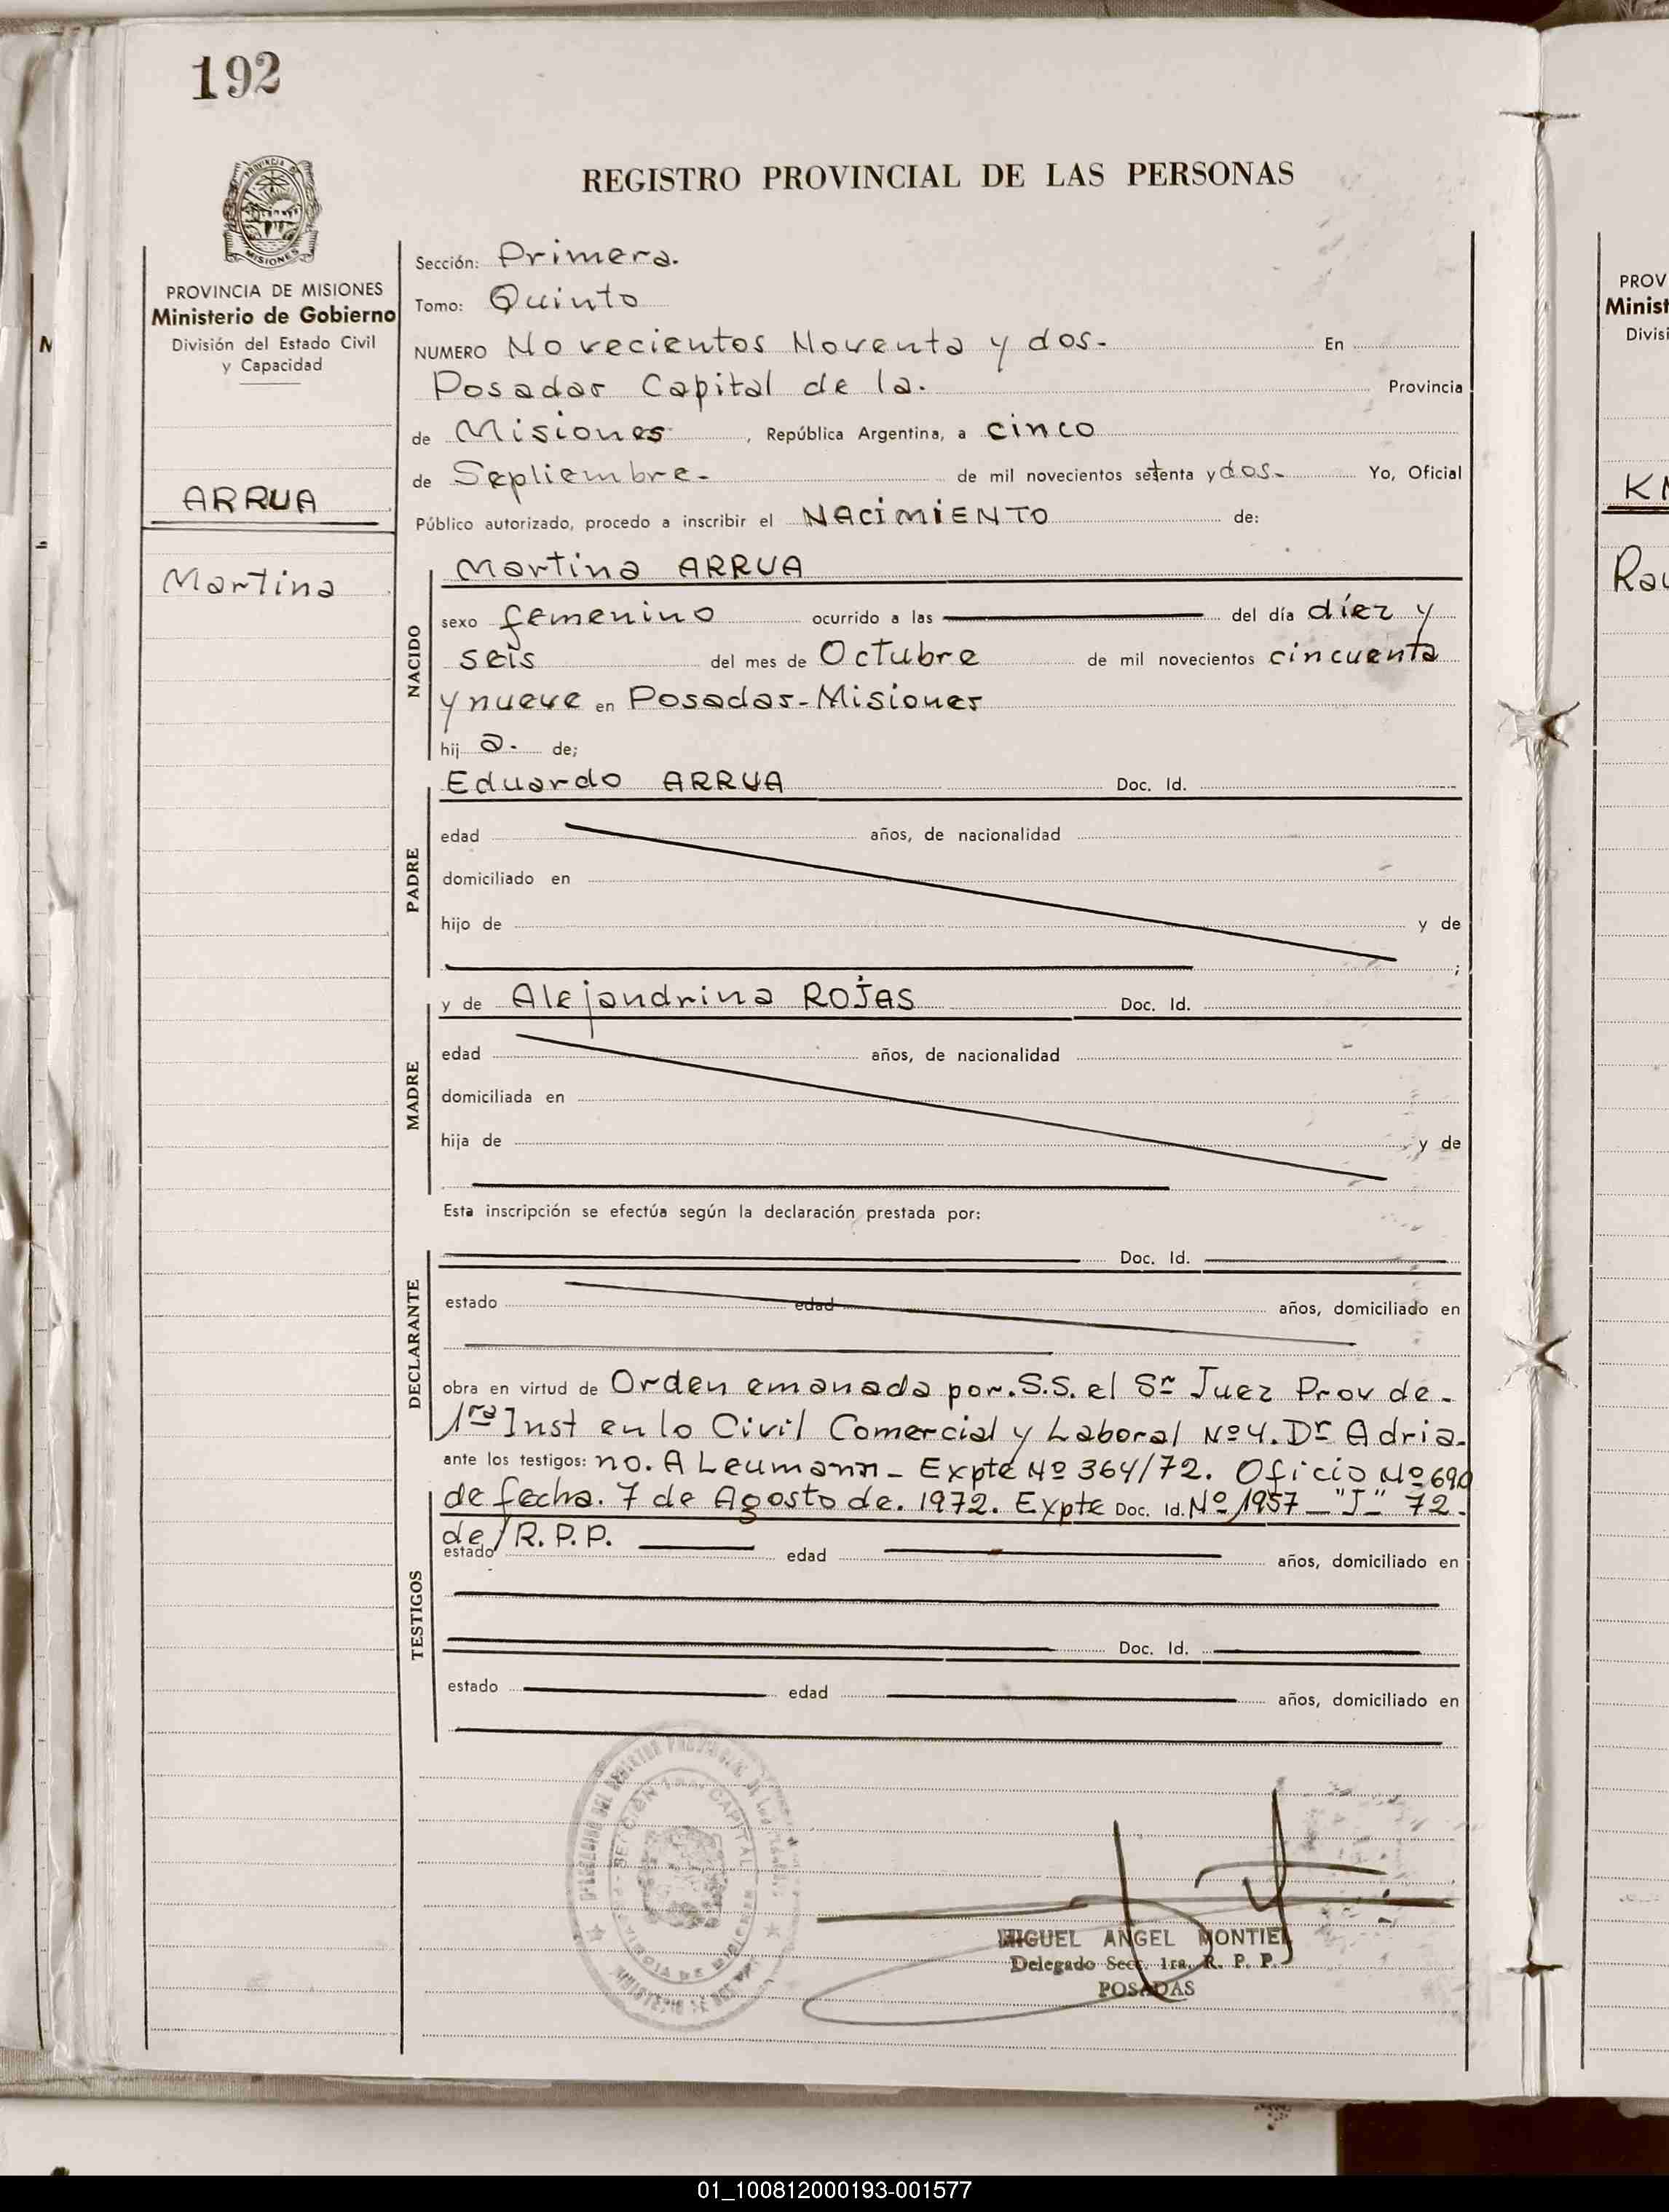 192
REGISTRO PROVINCIAL DE LAS PERSONAS
PROVINCIA DE MISIONES
Ministerio de Gobierno
División del Estado Civil
y Capacidad
ARRUA
Martina
Sección: Primera.
Tomo: Quinto
NUMERO Novecientos Noventa y dos- En
Posadas Capital de la. Provincia
de Misiones, República Argentina, a cinco
de Septiembre- de mil novecientos setenta y dos- Yo, Oficial
Público autorizado, procedo a inscribir el NACIMIENTO de:
NACIDO
Martina ARRUA
sexo femenino ocurrido a las del día diez y
seis del mes de Octubre de mil novecientos cincuenta
y nueve en Posadas-Misiones
hij a. de;
PADRE
Eduardo ARRUA Doc. Id.
edad años, de nacionalidad
domiciliado en
hijo de y de
;
MADRE
y de Alejandrina ROJAS Doc. Id.
edad años, de nacionalidad
domiciliada en
hija de y de
Esta inscripción se efectúa según la declaración prestada por:
DECLARANTE
Doc. Id.
estado edad años, domiciliado en
obra en virtud de Orden emanada por. S.S. el Sr Juez Prov de-
1ra Inst en lo Civil Comercial y Laboral Nº4. Dr Adria-
ante los testigos: no. A Leumann- Expte Nº 364/72. Oficio Nº 690
de fecha. 7 de Agosto de. 1972. Expte Doc. Id. Nº 1957 - "J" 72-
TESTIGOS
de/R.P.P.
estado edad años, domiciliado en
Doc. Id.
estado edad años, domiciliado en
SECCION CAPITAL
MIGUEL ANGEL MONTIEL
Delegado Secc. 1ra. R. P. P.
POSADAS
PROV
Minist
Divisi
01_100812000193-001577